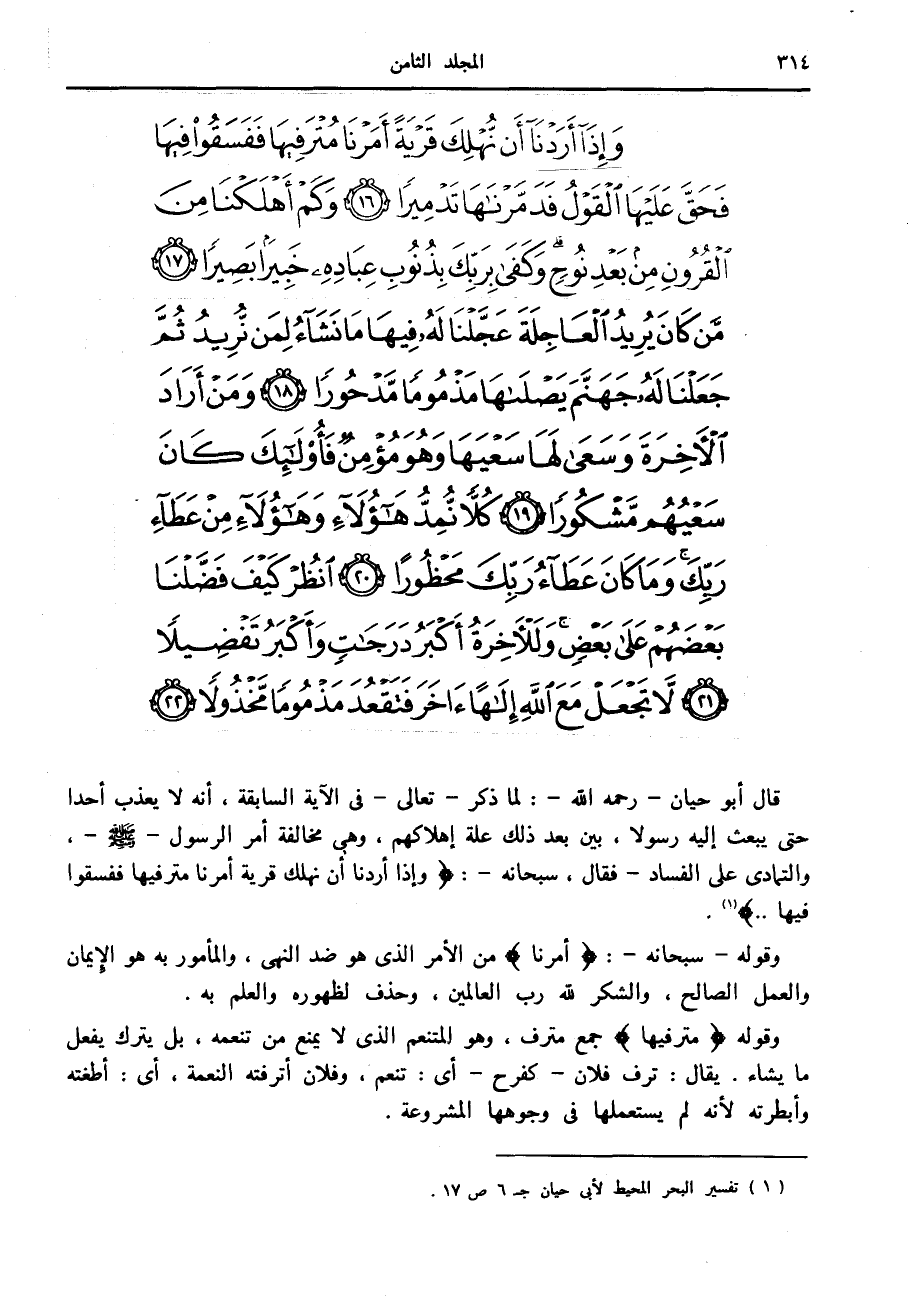 ٣١٤ المجلد الثامن
وَإِذَآ أَرَدْنَآ أَن نُّهْلِكَ قَرْيَةً أَمَرْنَا مُتْرَفِيهَا فَفَسَقُوا۟ فِيهَا
فَحَقَّ عَلَيْهَا ٱلْقَوْلُ فَدَمَّرْنَٰهَا تَدْمِيرًا ﴿١٦﴾ وَكَمْ أَهْلَكْنَا مِنَ
ٱلْقُرُونِ مِنۢ بَعْدِ نُوحٍ ۗ وَكَفَىٰ بِرَبِّكَ بِذُنُوبِ عِبَادِهِۦ خَبِيرًۢا بَصِيرًا ﴿١٧﴾
مَّن كَانَ يُرِيدُ ٱلْعَاجِلَةَ عَجَّلْنَا لَهُۥ فِيهَا مَا نَشَآءُ لِمَن نُّرِيدُ ثُمَّ
جَعَلْنَا لَهُۥ جَهَنَّمَ يَصْلَىٰهَا مَذْمُومًا مَّدْحُورًا ﴿١٨﴾ وَمَنْ أَرَادَ
ٱلْءَاخِرَةَ وَسَعَىٰ لَهَا سَعْيَهَا وَهُوَ مُؤْمِنٌ فَأُو۟لَٰٓئِكَ كَانَ
سَعْيُهُم مَّشْكُورًا ﴿١٩﴾ كُلًّا نُّمِدُّ هَٰٓؤُلَآءِ وَهَٰٓؤُلَآءِ مِنْ عَطَآءِ
رَبِّكَ ۚ وَمَا كَانَ عَطَآءُ رَبِّكَ مَحْظُورًا ﴿٢٠﴾ ٱنظُرْ كَيْفَ فَضَّلْنَا
بَعْضَهُمْ عَلَىٰ بَعْضٍ ۚ وَلَلْءَاخِرَةُ أَكْبَرُ دَرَجَٰتٍ وَأَكْبَرُ تَفْضِيلًا
﴿٢١﴾ لَّا تَجْعَلْ مَعَ ٱللَّهِ إِلَٰهًا ءَاخَرَ فَتَقْعُدَ مَذْمُومًا مَّخْذُولًا ﴿٢٢﴾
قال أبو حيان – رحمه الله – : لما ذكر – تعالى – فى الآية السابقة ، أنه لا يعذب أحدا
حتى يبعث إليه رسولا ، بين بعد ذلك علة إهلاكهم ، وهى مخالفة أمر الرسول – ﷺ – ،
والتمادى على الفساد – فقال ، سبحانه – : ﴿ وإذا أردنا أن نهلك قرية أمرنا مترفيها ففسقوا
فيها ..﴾(١) .
وقوله – سبحانه – : ﴿ أمرنا ﴾ من الأمر الذى هو ضد النهى ، والمأمور به هو الإيمان
والعمل الصالح ، والشكر لله رب العالمين ، وحذف لظهوره والعلم به .
وقوله ﴿ مترفيها ﴾ جمع مترف ، وهو المتنعم الذى لا يمنع من تنعمه ، بل يترك يفعل
ما يشاء . يقال : ترف فلان – كفرح – أى : تنعم ، وفلان أترفته النعمة ، أى : أطغته
وأبطرته لأنه لم يستعملها فى وجوهها المشروعة .
( ١ ) تفسير البحر المحيط لأبى حيان جـ ٦ ص ١٧ .